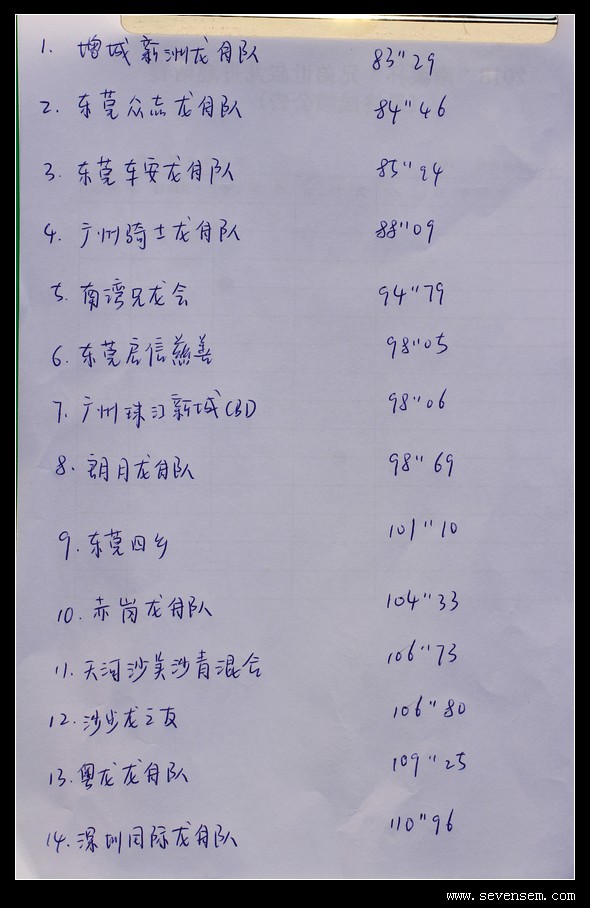 1. 增城新洲龙舟队 83"29
2. 东莞众志龙舟队 84"46
3. 东莞车安龙舟队 85"94
4. 广州骑士龙舟队 88"09
5. 南湾兄龙会 94"79
6. 东莞启信慈善 98"05
7. 广州珠江新城CBD 98"06
8. 朗月龙舟队 98"69
9. 东莞四乡 101"10
10. 赤岗龙舟队 104"33
11. 天河沙美沙青混合 106"73
12. 沙步龙之友 106"80
13. 粤龙龙舟队 109"25
14. 深圳国际龙舟队 110"96
www.sevensem.com